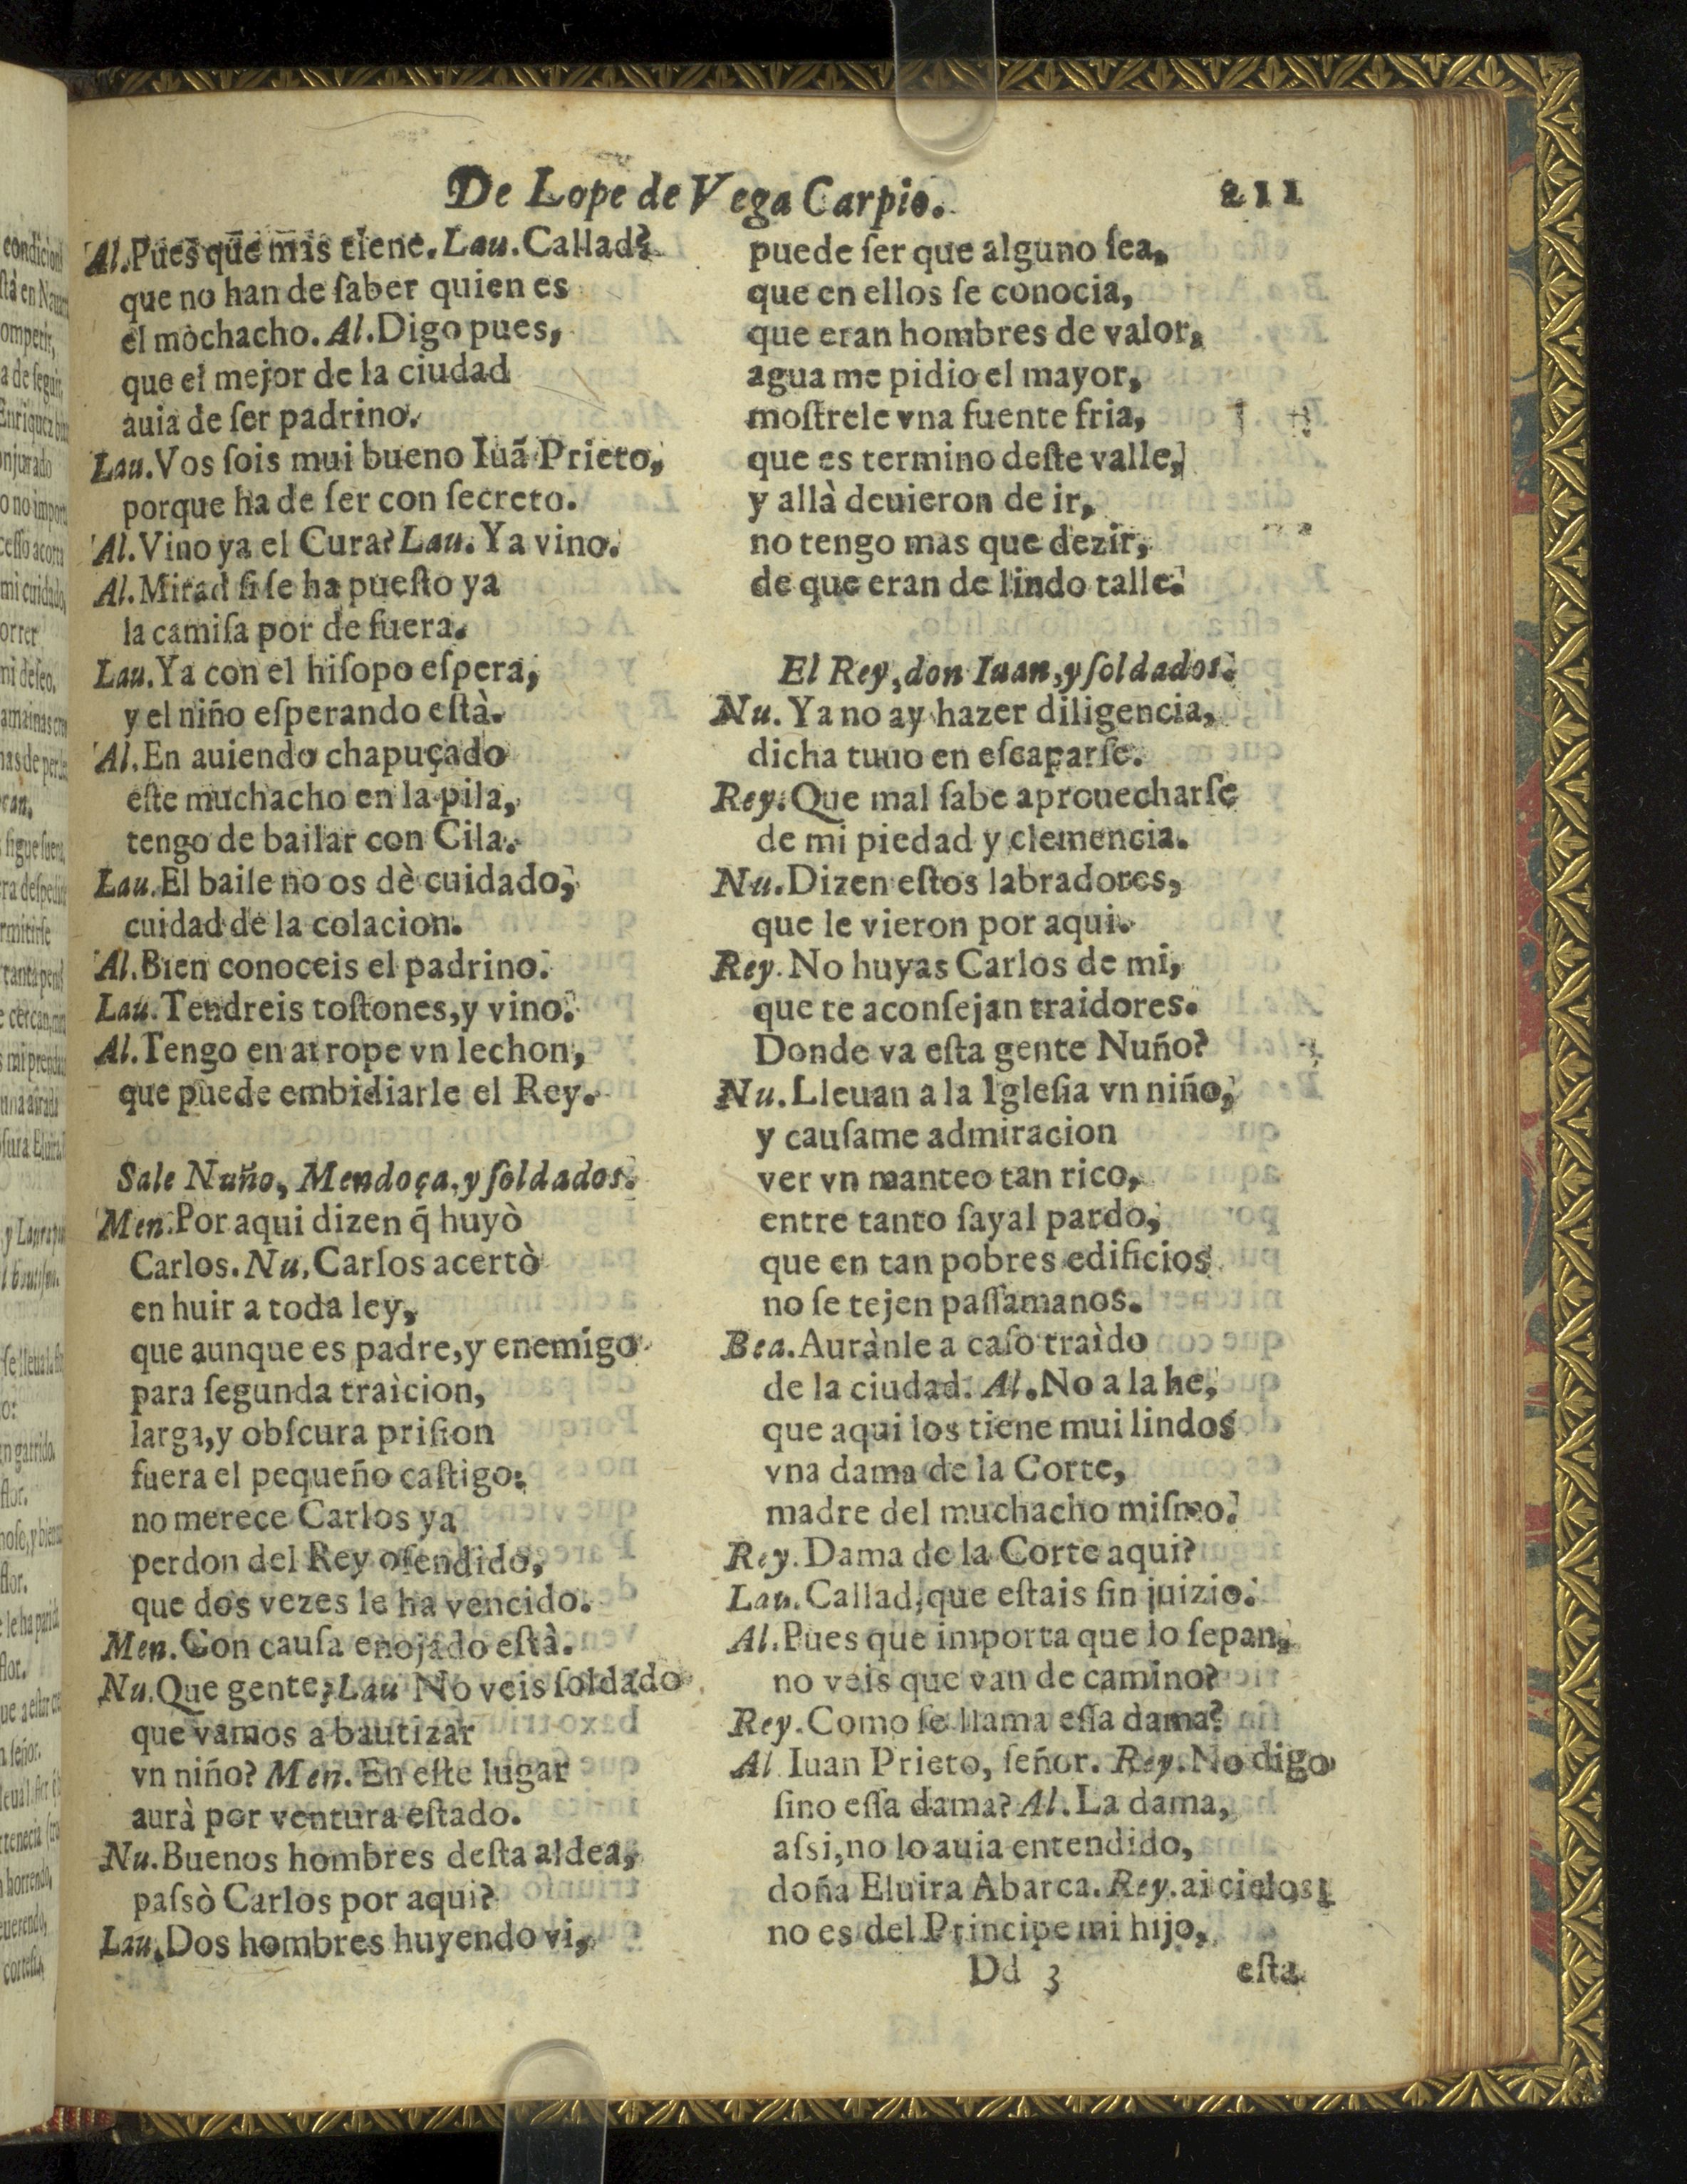 De Lope de Vega Carpio. 211
Al. Pues que mas tiene. Lau. Callad?
que no han de ſaber quien es
el mochacho. Al. Digo pues,
que el mejor de la ciudad
auia de ſer padrino.
Lau. Vos ſois mui bueno Iuã Prieto,
porque ha de ſer con ſecreto.
Al. Vino ya el Cura? Lau. Ya vino.
Al. Mirad ſi ſe ha pueſto ya
la camiſa por de fuera.
Lau. Ya con el hiſopo eſpera,
y el niño eſperando eſtà.
Al. En auiendo chapuçado
eſte muchacho en la pila,
tengo de bailar con Cila.
Lau. El baile no os dè cuidado,
cuidad de la colacion.
Al. Bien conoceis el padrino.
Lau. Tendreis toſtones, y vino.
Al. Tengo en arrope vn lechon,
que puede embidiarle el Rey.
Sale Nuño, Mendoça, y ſoldados.
Men. Por aqui dizen q̃ huyò
Carlos. Nu. Carlos acertò
en huir a toda ley,
que aunque es padre, y enemigo
para ſegunda traicion,
larga, y obſcura priſion
fuera el pequeño caſtigo:
no merece Carlos ya
perdon del Rey ofendido,
que dos vezes le ha vencido.
Men. Con cauſa enojado eſtà.
Nu. Que gente? Lau No veis ſoldado
que vamos a bautizar
vn niño? Men. En eſte lugar
aurà por ventura eſtado.
Nu. Buenos hombres deſta aldea,
paſsò Carlos por aqui?
Lau. Dos hombres huyendo vi,
puede ſer que alguno ſea,
que en ellos ſe conocia,
que eran hombres de valor,
agua me pidio el mayor,
moſtrele vna fuente fria,
que es termino deſte valle,
y allà deuieron de ir,
no tengo mas que dezir,
de que eran de lindo talle.
El Rey, don Iuan, y ſoldados.
Nu. Ya no ay hazer diligencia,
dicha tuuo en eſcaparſe.
Rey. Que mal ſabe aprouecharſe
de mi piedad y clemencia.
Nu. Dizen eſtos labradores,
que le vieron por aqui.
Rey. No huyas Carlos de mi,
que te aconſejan traidores.
Donde va eſta gente Nuño?
Nu. Lleuan a la Igleſia vn niño,
y cauſame admiracion
ver vn manteo tan rico,
entre tanto ſayal pardo,
que en tan pobres edificios
no ſe tejen paſſamanos.
Bea. Aurànle a caſo traìdo
de la ciudad. Al. No a la he,
que aqui los tiene mui lindos
vna dama de la Corte,
madre del muchacho miſmo.
Rey. Dama de la Corte aqui?
Lau. Callad, que eſtais ſin juizio.
Al. Pues que importa que lo ſepan,
no veis que van de camino?
Rey. Como ſe llama eſſa dama?
Al Iuan Prieto, ſeñor. Rey. No digo
ſino eſſa dama? Al. La dama,
aſsi, no lo auia entendido,
doña Eluira Abarca. Rey. ai cielos!
no es del Principe mi hijo,
Dd 3 eſta